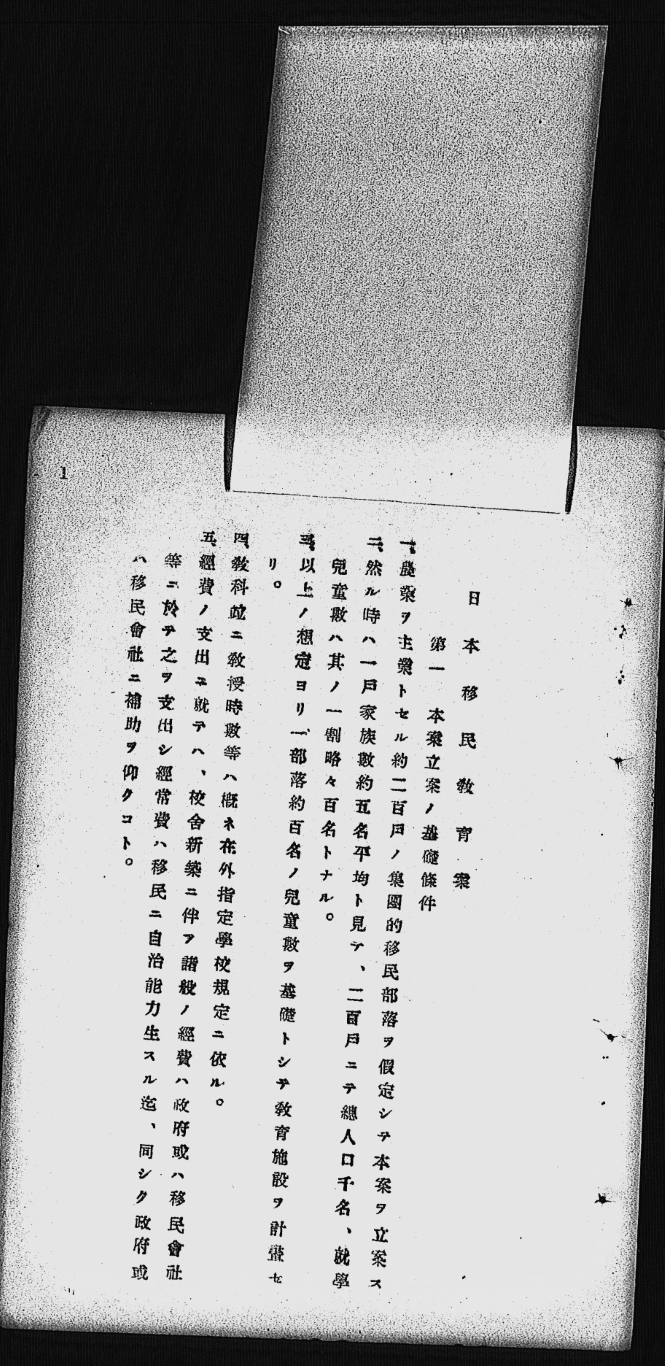 日本移民敎育案
第一 本案立案ノ基礎條件
一、農業ヲ主業トセル約二百戸ノ集團的移民部落ヲ假定シテ本案ヲ立案ス
二、然ル時ハ一戸家族數約五名平均ト見テ、二百戸ニテ總人口千名、就學
兒童數ハ其ノ一割略々百名トナル。
三、以上ノ想定ヨリ一部落約百名ノ兒童數ヲ基礎トシテ敎育施設ヲ計畫セ
リ。
四、敎科竝ニ敎授時數等ハ概ネ在外指定學校規定ニ依ル。
五、經費ノ支出ニ就テハ、校舍新築ニ伴フ諸般ノ經費ハ政府或ハ移民會社
等ニ於テ之ヲ支出シ經常費ハ移民ニ自治能力生スル迄、同シク政府或
ハ移民會社ニ補助ヲ仰クコト。
1